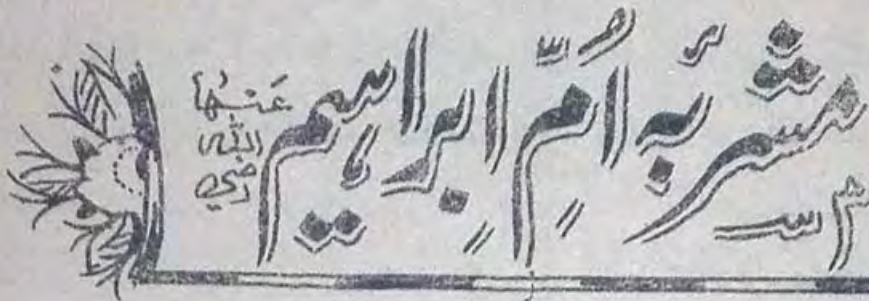 مشربہ اُمِّ ابراہیم رضي الله عنها